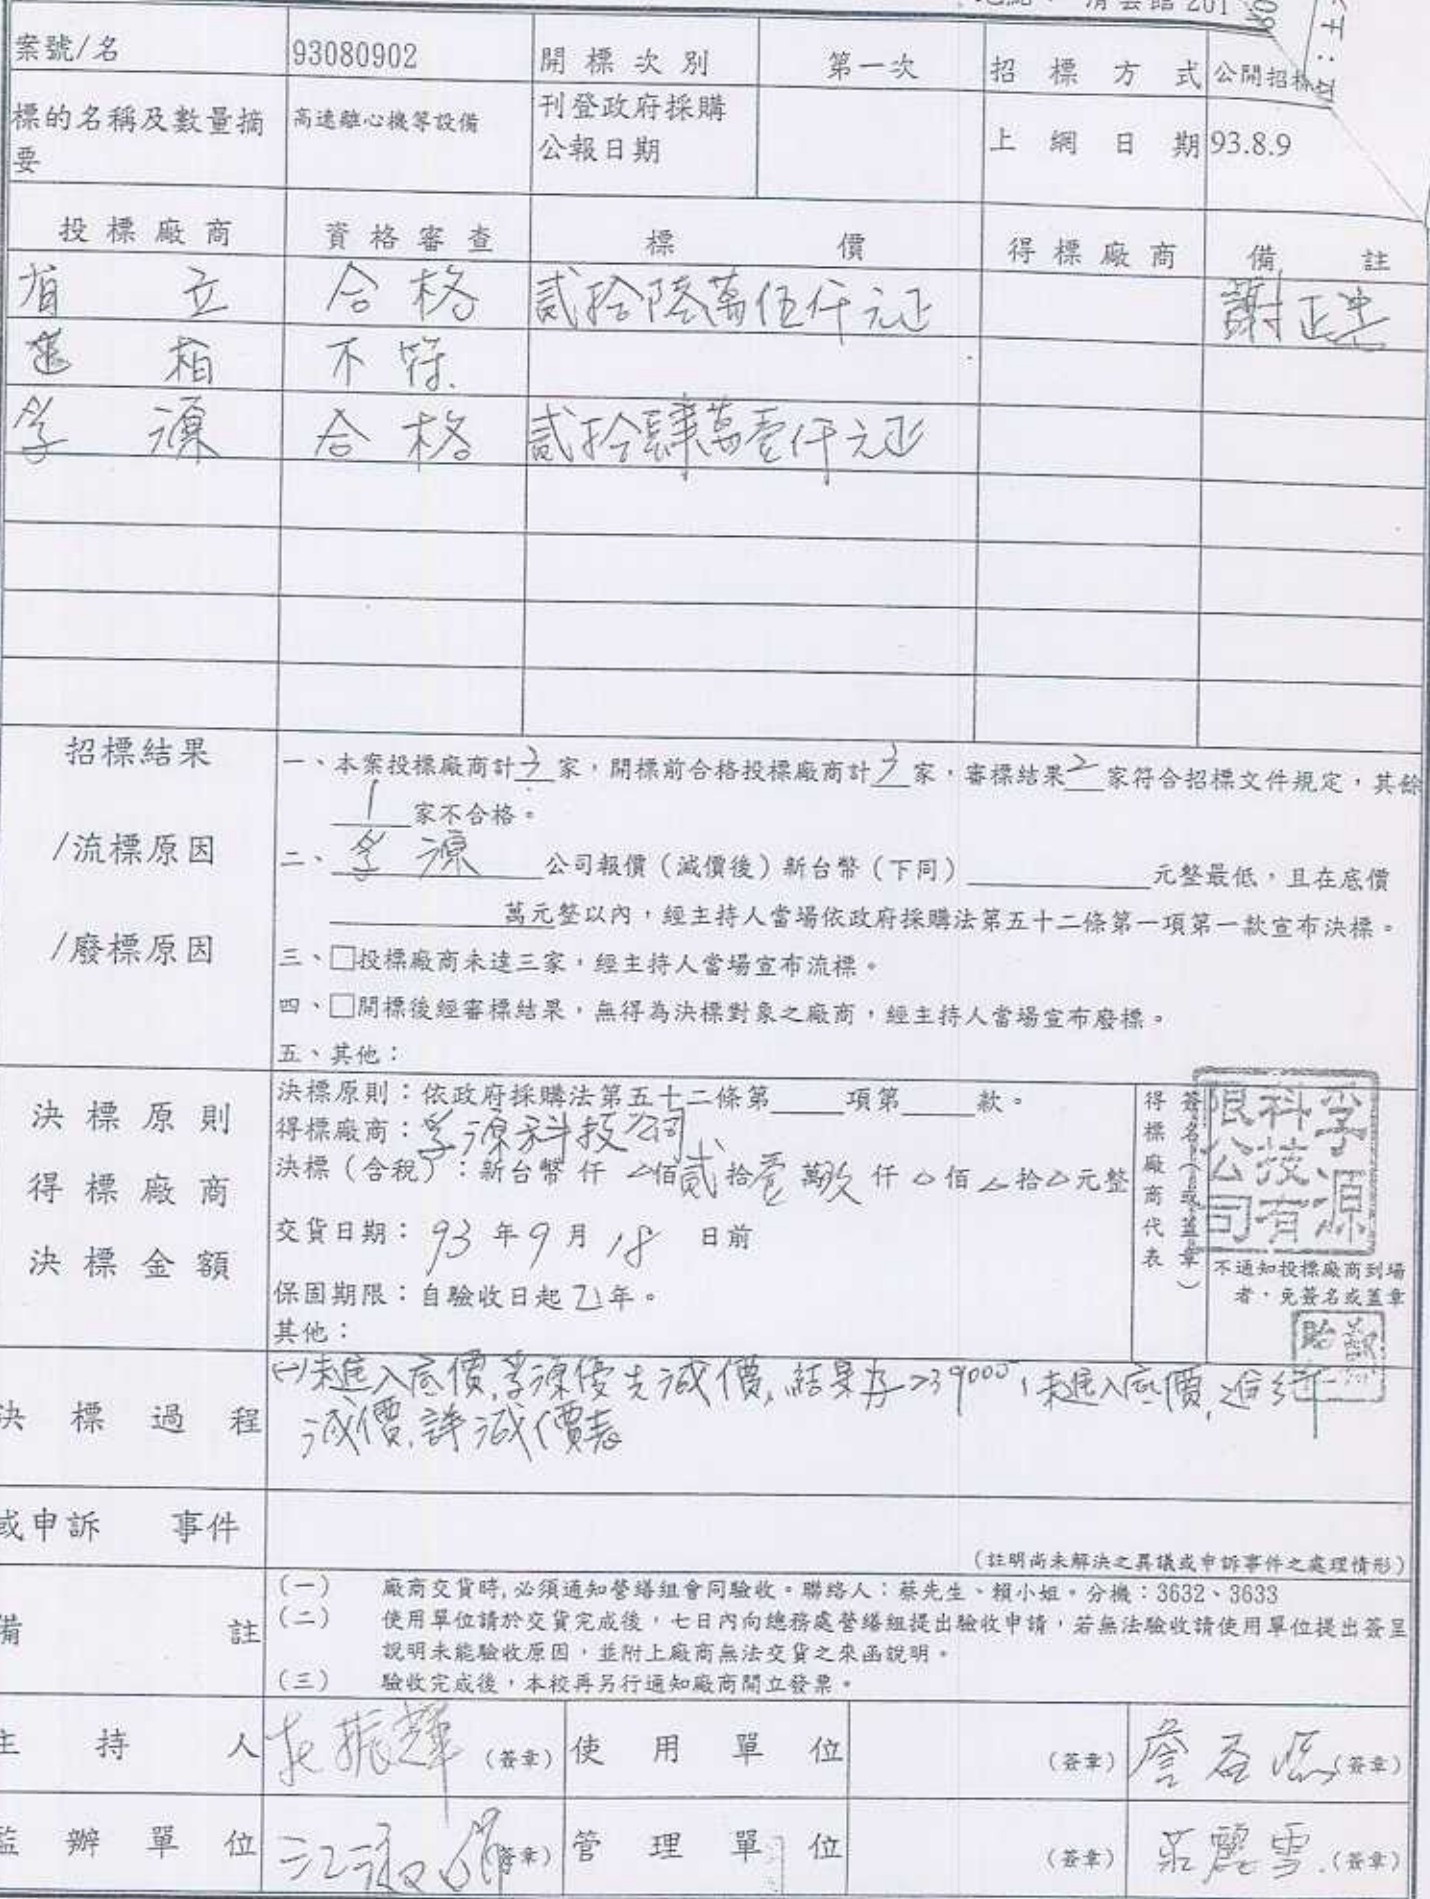 清雲館 201
案號/名 93080902 開標次別 第一次 招標方式 公開招標
標的名稱及數量摘要 高速離心機等設備 刊登政府採購公報日期 上網日期 93.8.9
投標廠商 資格審查 標價 得標廠商 備註
省立 合格 貳拾陸萬伍仟元正
進相 不符
孚源 合格 貳拾肆萬壹仟元正
招標結果
/流標原因
/廢標原因
一、本案投標廠商計3家,開標前合格投標廠商計3家,審標結果2家符合招標文件規定,其餘
1家不合格。
二、孚源公司報價(減價後)新台幣(下同)元整最低,且在底價
萬元整以內,經主持人當場依政府採購法第五十二條第一項第一款宣布決標。
三、□投標廠商未達三家,經主持人當場宣布流標。
四、□開標後經審標結果,無得為決標對象之廠商,經主持人當場宣布廢標。
五、其他:
決標原則
得標廠商
決標金額
決標原則:依政府採購法第五十二條第 項第 款。
得標廠商:孚源科技公司
決標(含稅):新台幣 仟 佰貳拾壹萬玖仟 佰 拾 元整
交貨日期:93年9月18日前
保固期限:自驗收日起 年。
其他:
得標廠商代表
簽名(或蓋章)
孚源科技有限公司
不通知投標廠商到場
者,免簽名或蓋章
決標過程
(一)未進入底價,孚源優先減價,結果為239000,未進入底價,進行
減價,詳減價表
或申訴 事件
(註明尚未解決之異議或申訴事件之處理情形)
備註
(一) 廠商交貨時,必須通知營繕組會同驗收。聯絡人:蔡先生、賴小姐。分機:3632、3633
(二) 使用單位請於交貨完成後,七日內向總務處營繕組提出驗收申請,若無法驗收請使用單位提出簽呈
說明未能驗收原因,並附上廠商無法交貨之來函說明。
(三) 驗收完成後,本校再另行通知廠商開立發票。
主持人 (簽章) 使用單位 (簽章) (簽章)
監辦單位 (簽章) 管理單位 (簽章) 莊麗雪 (簽章)